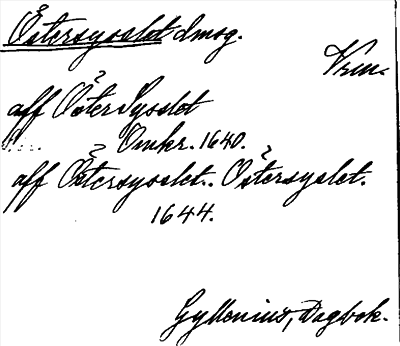 Östersysslet dmog.
Vrm.
aff Öster Sysslet
Omkr. 1640.
aff Östersysslet. Östersyslet.
1644.
Gyllenius, Dagbok.